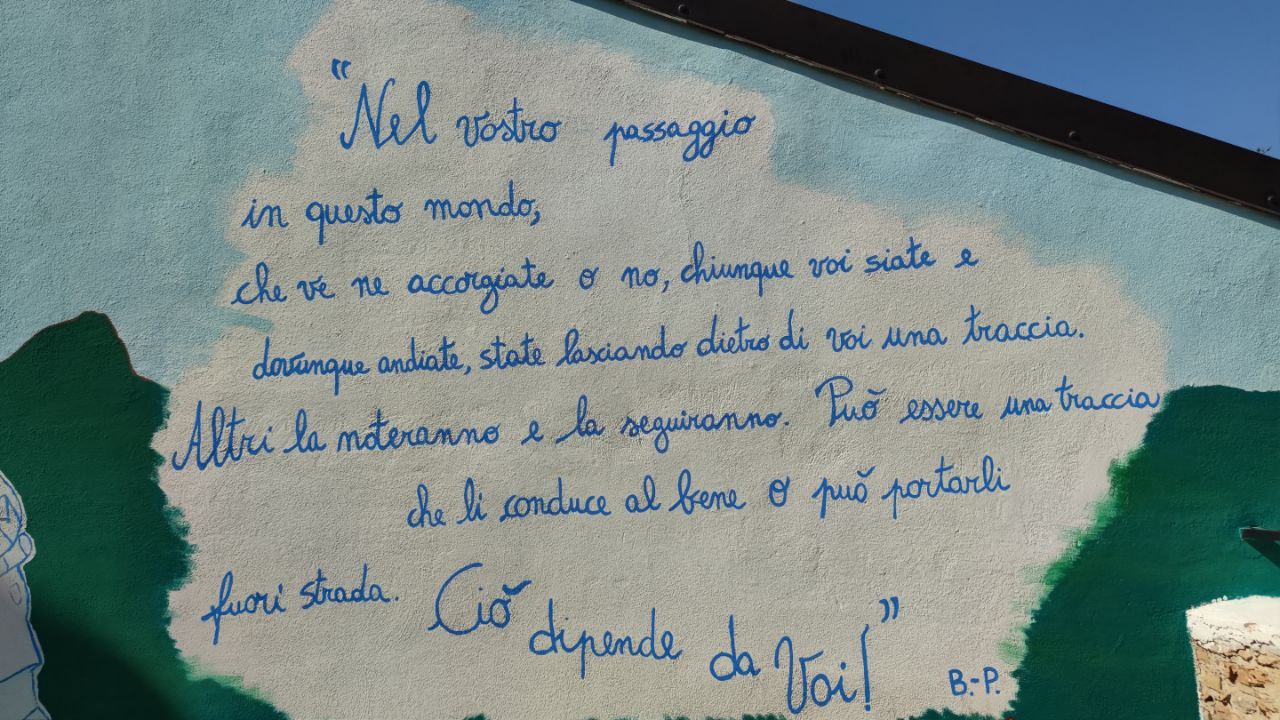 "Nel vostro passaggio
in questo mondo,
che ve ne accorgiate o no, chiunque voi siate e
dovunque andiate, state lasciando dietro di voi una traccia.
Altri la noteranno e la seguiranno. Può essere una traccia
che li conduce al bene o può portarli
fuori strada. Ciò dipende da Voi!"
B.-P.